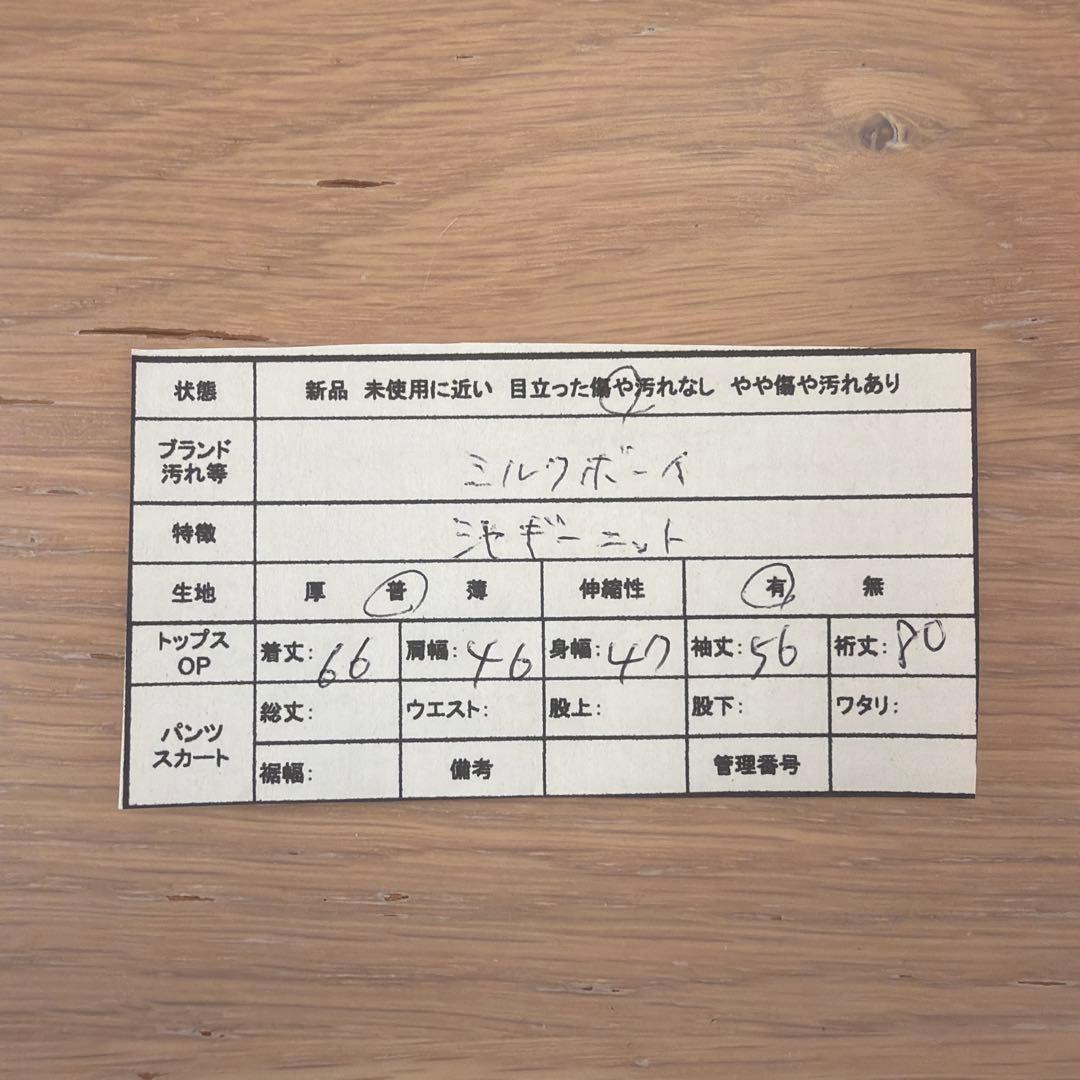 状態 新品 未使用に近い 目立った傷や汚れなし やや傷や汚れあり
ブランド
汚れ等
ミルクボーイ
特徴 シャギーニット
生地 厚 普 薄 伸縮性 有 無
トップス
OP
着丈:66 肩幅:46 身幅:47 袖丈:56 裄丈:80
パンツ
スカート
総丈: ウエスト: 股上: 股下: ワタリ:
裾幅: 備考 管理番号